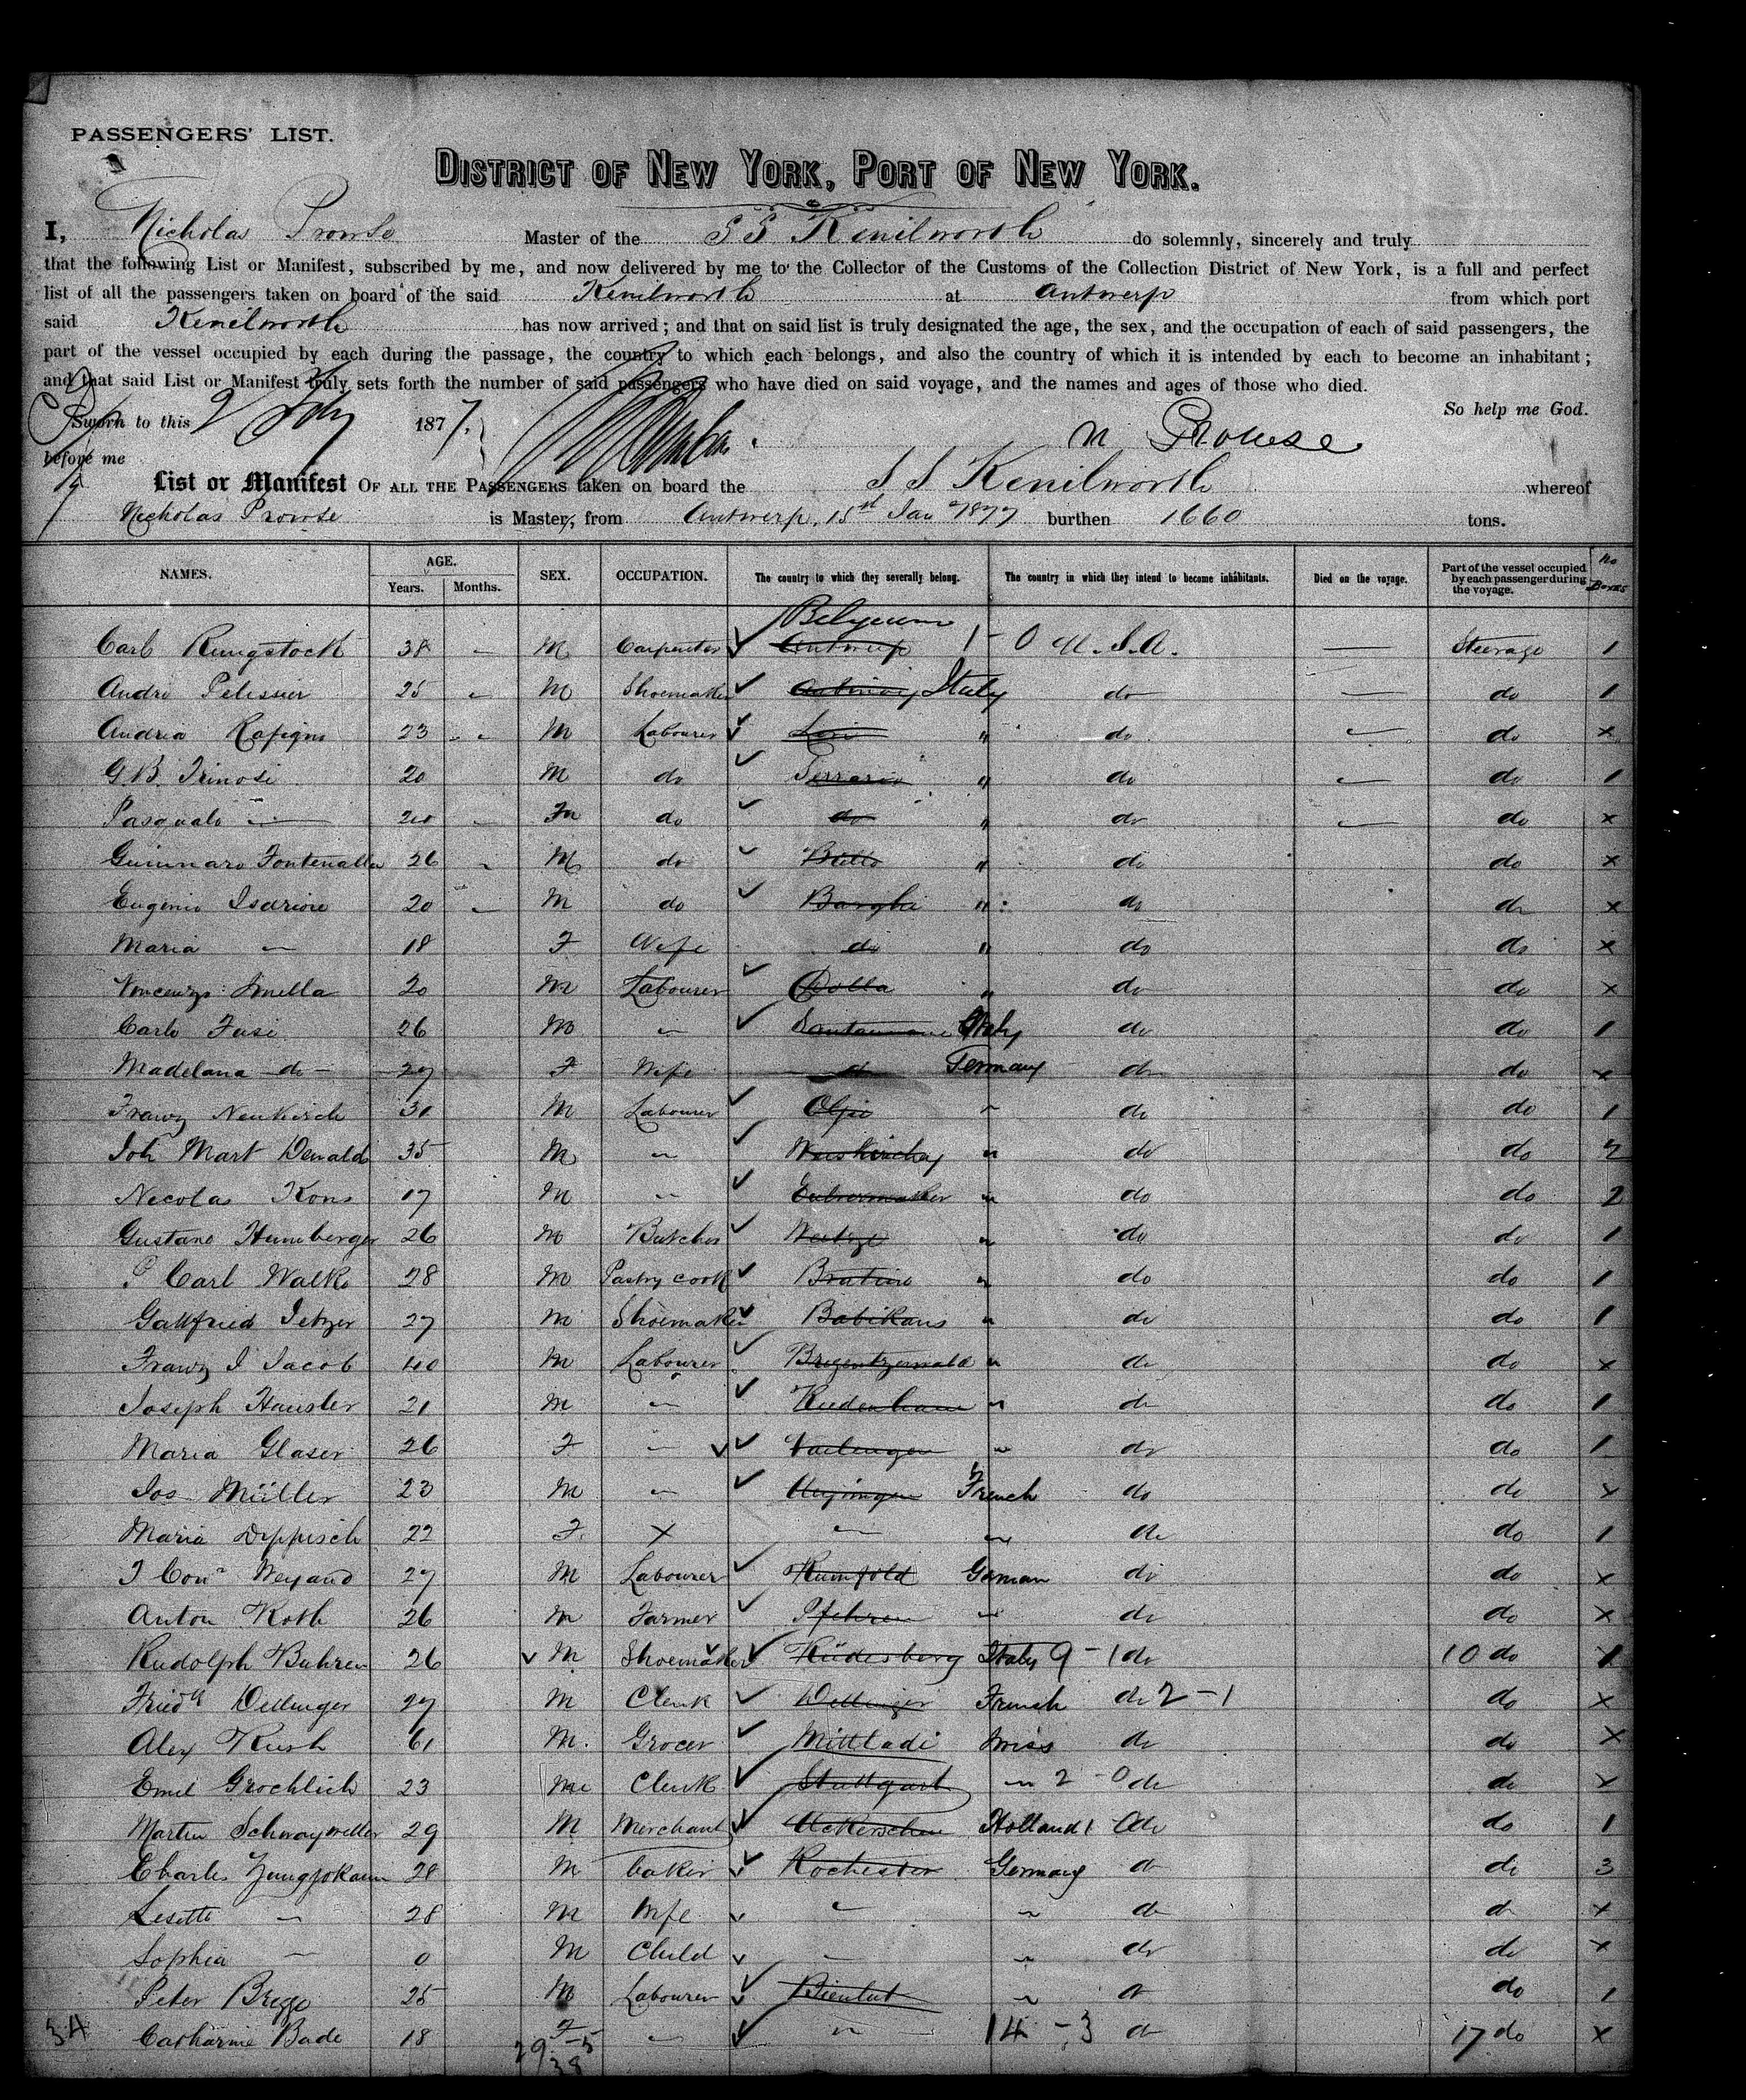 PASSENGERS' LIST.
DISTRICT OF NEW YORK, PORT OF NEW YORK.
I, Nicholas Prowse Master of the S S Kenilworth do solemnly, sincerely and truly
that the following List or Manifest, subscribed by me, and now delivered by me to the Collector of the Customs of the Collection District of New York, is a full and perfect
list of all the passengers taken on board of the said Kenilworth at Antwerp from which port
said Kenilworth has now arrived; and that on said list is truly designated the age, the sex, and the occupation of each of said passengers, the
part of the vessel occupied by each during the passage, the country to which each belongs, and also the country of which it is intended by each to become an inhabitant;
and that said List or Manifest truly sets forth the number of said passengers who have died on said voyage, and the names and ages of those who died.
So help me God.
Sworn to this 2 Feby 1877.
N Prowse
before me
List or Manifest OF ALL THE PASSENGERS taken on board the S S Kenilworth whereof
Nicholas Prowse is Master, from Antwerp, 15st Jan 1877 burthen 1660 tons.
NAMES. AGE. Years. Months. SEX. OCCUPATION. The country to which they severally belong. The country in which they intend to become inhabitants. Died on the voyage. Part of the vessel occupied by each passenger during the voyage. No Boxes
Belgeum
Carl Rungstock 38 – M Carpenter Antwerp 1 – 0 U.S.A. — Steerage 1
Andre Pelissier 25 – M Shoemaker Italy do — do 1
Andria Rafigni 23 M Labourer " do — do x
G.B. Trinosi 20 M do Ferraria " do — do 1
Pasquale — 20 – M do do " do — do x
Guinnaro Fontenalla 26 – M do " do do x
Eugenio Isarione 20 – M do Barghi " do do x
Maria — 18 F Wife do " do do x
Vincenzo Imella 20 M Labourer " do do x
Carlo Fusi 26 M – Italy do do 1
Madelana do 27 F Wife do Germany do do x
Franz Neukirch 31 M Labourer " do do 1
Joh Mart Dewald 35 M " " do do 2
Necolas Kons 17 M " " do do 2
Gustave Humberger 26 M Butcher " do do 1
P Carl Walk 28 M Pastry cook " do do 1
Gattfried Jetzer 27 M Shoemaker Babikaus " do do 1
Franz J Jacob 40 M Labourer Bregentzerwald " do do x
Joseph Hausler 21 M " " do do 1
Maria Glaser 26 F " " do do 1
Jos Müller 23 M " French do do x
Maria Deppisch 22 F. x " " do do 1
J Conr Weyand 27 M Labourer Rumfold German do do x
Anton Roth 26 M Farmer " do do x
Rudolph Buhren 26 M Shoemaker Rüdesberg Italy 9 – 1 do 10 do 1
Friedk Dellinger 27 M Clerk French do 2 – 1 do x
Alex Kush 61 M. Grocer Mittladi Swiss do do x
Emil Grochlich 23 M Clerk Stuttgart " 2 – 0 do do x
Martin 29 M Merchant Holland 1 0 do do 1
Charles 28 M baker Rochester Germany do do 3
Lesette — 28 M Wife " " do do x
Sophia — 0 M Child " " do do x
Peter Bregge 25 M Labourer " do do 1
34 Catharine Bade 18 F " " 14 – 3 do 17 do x
29 – 5
38